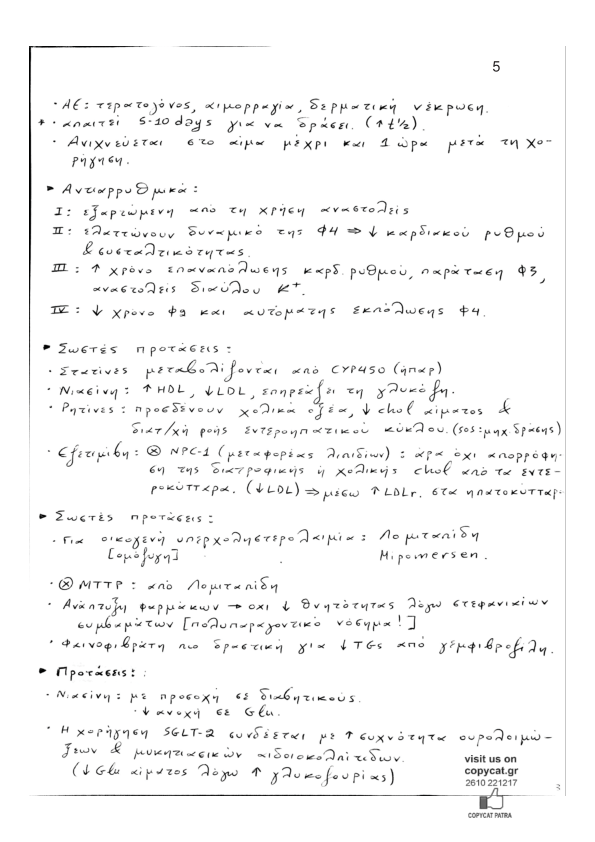 5
· ΑΕ: τερατογόνος, αιμορραγία, δερματική νέκρωση.
* · απαιτεί 5-10 days για να δράσει. (↑ t½).
· Ανιχνεύεται στο αίμα μέχρι και 1 ώρα μετά τη χο-
ρήγηση.
► Αντιαρρυθμικά:
I: εξαρτώμενη από τη χρήση αναστολείς
II: ελαττώνουν δυναμικό της Φ4 ⇒ ↓ καρδιακού ρυθμού
& συσταλτικότητας.
III: ↑ χρόνο επαναπόλωσης καρδ. ρυθμού, παράταση Φ3,
αναστολείς διαύλου K⁺.
IV: ↓ χρόνο φ9 και αυτόματης εκπόλωσης φ4.
► Σωστές προτάσεις:
· Στατίνες μεταβολίζονται από CYP450 (ήπαρ)
· Νιασίνη: ↑HDL, ↓LDL, επηρεάζει τη γλυκόζη.
· Ρητίνες: προσδένουν χολικά οξέα, ↓ chol αίματος &
διατ/χή ροής εντεροηπατικού κύκλου. (sos: μηχ. δράσης)
· Εζετιμίβη: ⊗ NPC-1 (μεταφορέας λιπιδίων): άρα όχι απορρόφη-
ση της διατροφικής ή χολικής chol από τα εντε-
ροκύτταρα. (↓LDL) ⇒ μέσω ↑LDLr. στα ηπατοκύτταρ
► Σωστές προτάσεις:
· Για οικογενή υπερχοληστερολαιμία: Λομιταπίδη
[ομόζυγη] Mipomersen.
· ⊗ MTTP: από Λομιταπίδη
· Ανάπτυξη φαρμάκων → όχι ↓ θνητότητας λόγω στεφανιαίων
συμβαμάτων [πολυπαραγοντικό νόσημα!]
· Φαινοφιβράτη πιο δραστική για ↓TGs από γεμφιβροζίλη.
► Προτάσεις:
· Νιασίνη: με προσοχή σε διαβητικούς.
· ↓ ανοχή σε Glu.
· Η χορήγηση SGLT-2 συνδέεται με ↑ συχνότητα ουρολοιμώ-
ξεων & μυκητιασικών αιδοιοκολπιτίδων.
(↓ Glu αίματος λόγω ↑ γλυκοζουρίας)
visit us on
copycat.gr
2610 221217
3
COPYCAT PATRA